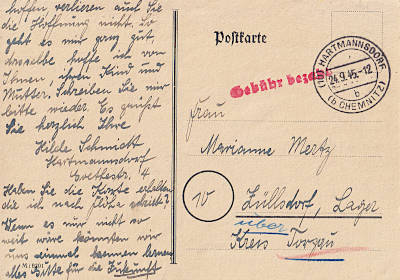 hoffen, verlieren auch Sie
die Hoffnung nicht. So
geht es mir ganz gut
dasselbe hoffe ich von
Ihnen, ihrem Kind und
Mutter. Schreiben Sie mir
bitte wieder. Es grüßt
Sie herzlich Ihre
Hilde Schmidt
Hartmannsdorf
Goethestr. 4
Haben Sie die Karte erhalten
die ich nach Flöha schrieb?
Wenn es nur nicht so
weit wäre könnten wir
uns einmal kennen lernen
Alles Gute für die Zukunft
Postkarte
Gebühr bezahlt
HARTMANNSDORF
24.9.45-12
b
(b. CHEMNITZ)
Frau
Marianne Mertz
10
Züllsdorf, Lager
über
Kreis Torgau